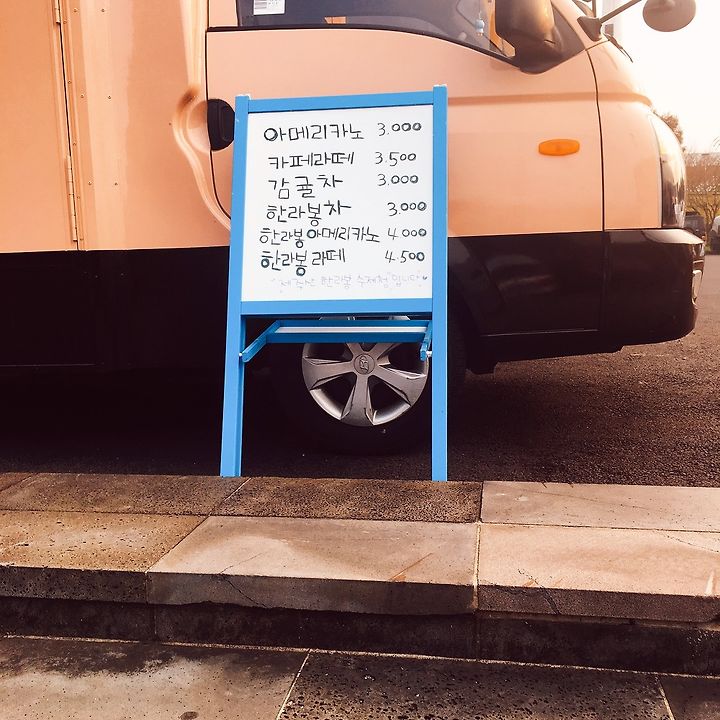 아메리카노 3.000
카페라떼 3.500
감귤차 3.000
한라봉차 3.000
한라봉아메리카노 4.000
한라봉라떼 4.500
한라봉 수제청"입니다♥